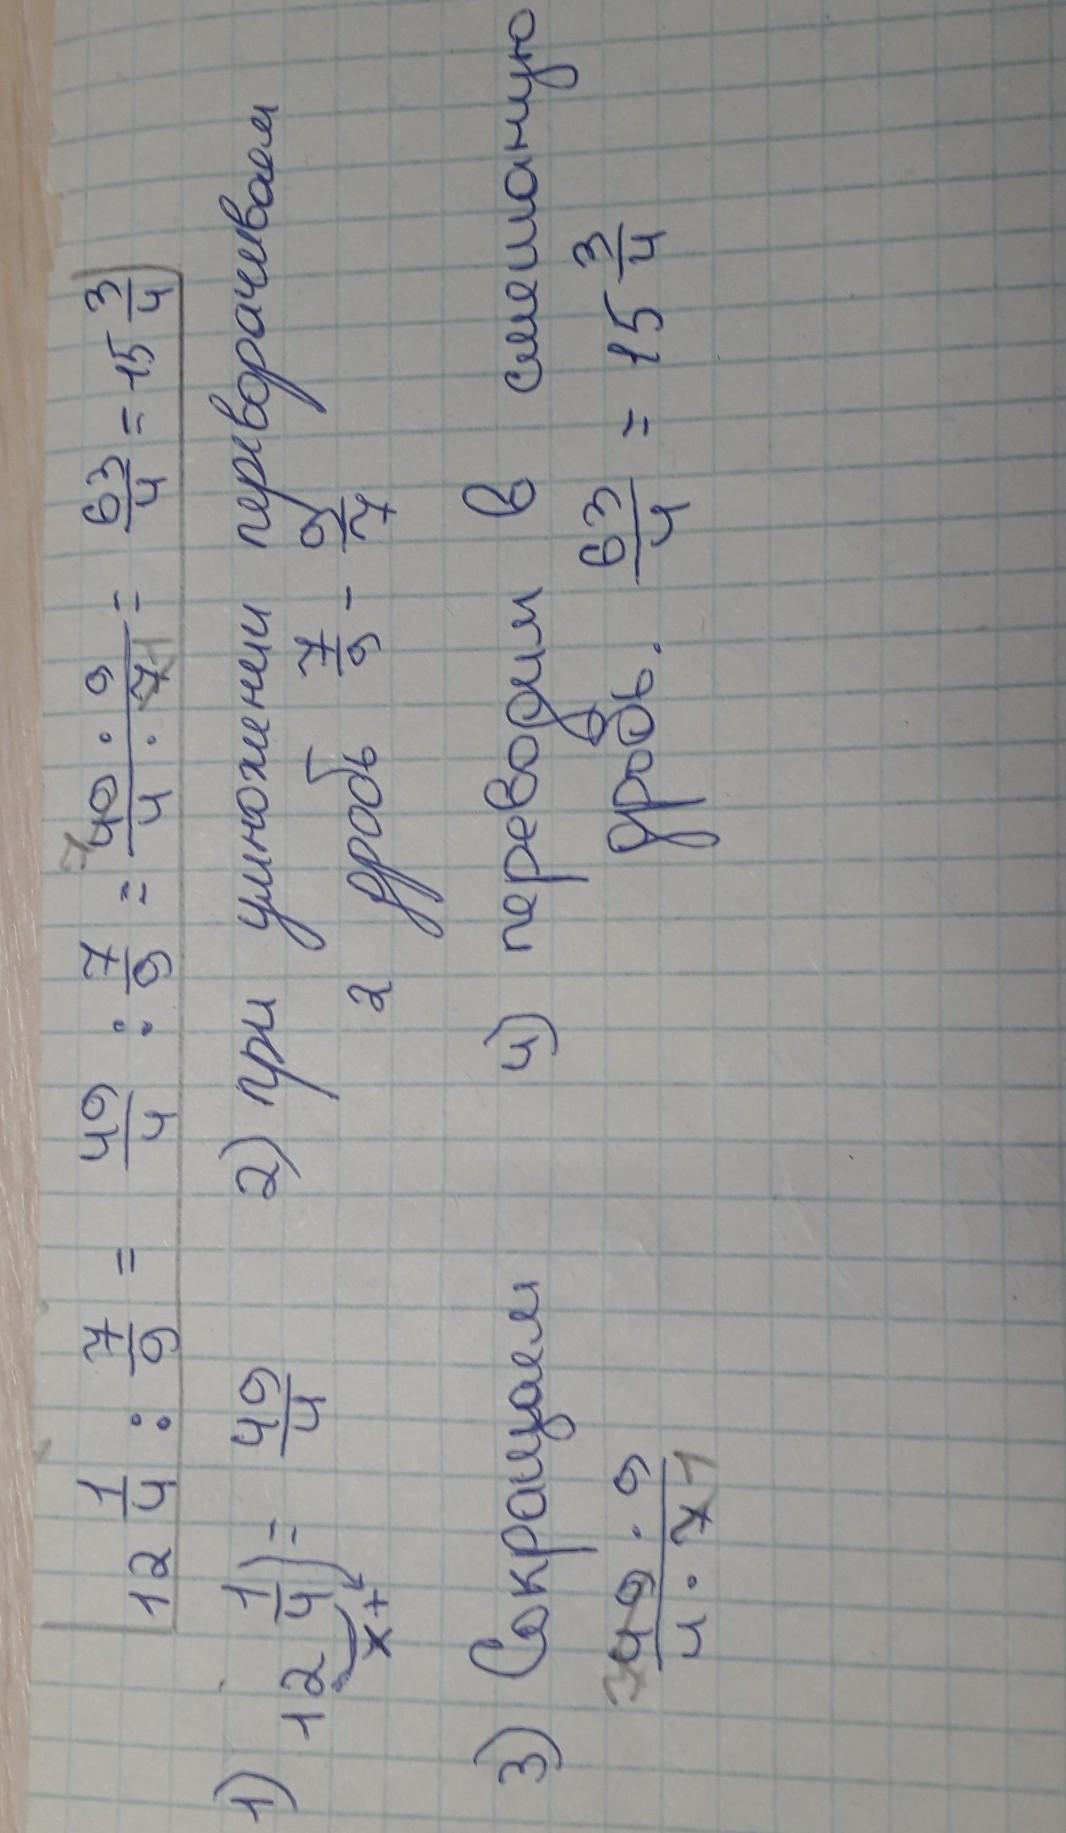 12 1/4 : 7/9 = 49/4 : 7/9 = 7 49 · 9 / 4 · 7 1 = 63/4 = 15 3/4
1) 12 1/4 = 49/4
x +
2) при умножении переворачиваем
2 дробь 7/9 - 9/7
3) Сокращаем
7 49 · 9 / 4 · 7 1
4) переводим в смешаную
дробь. 63/4 = 15 3/4